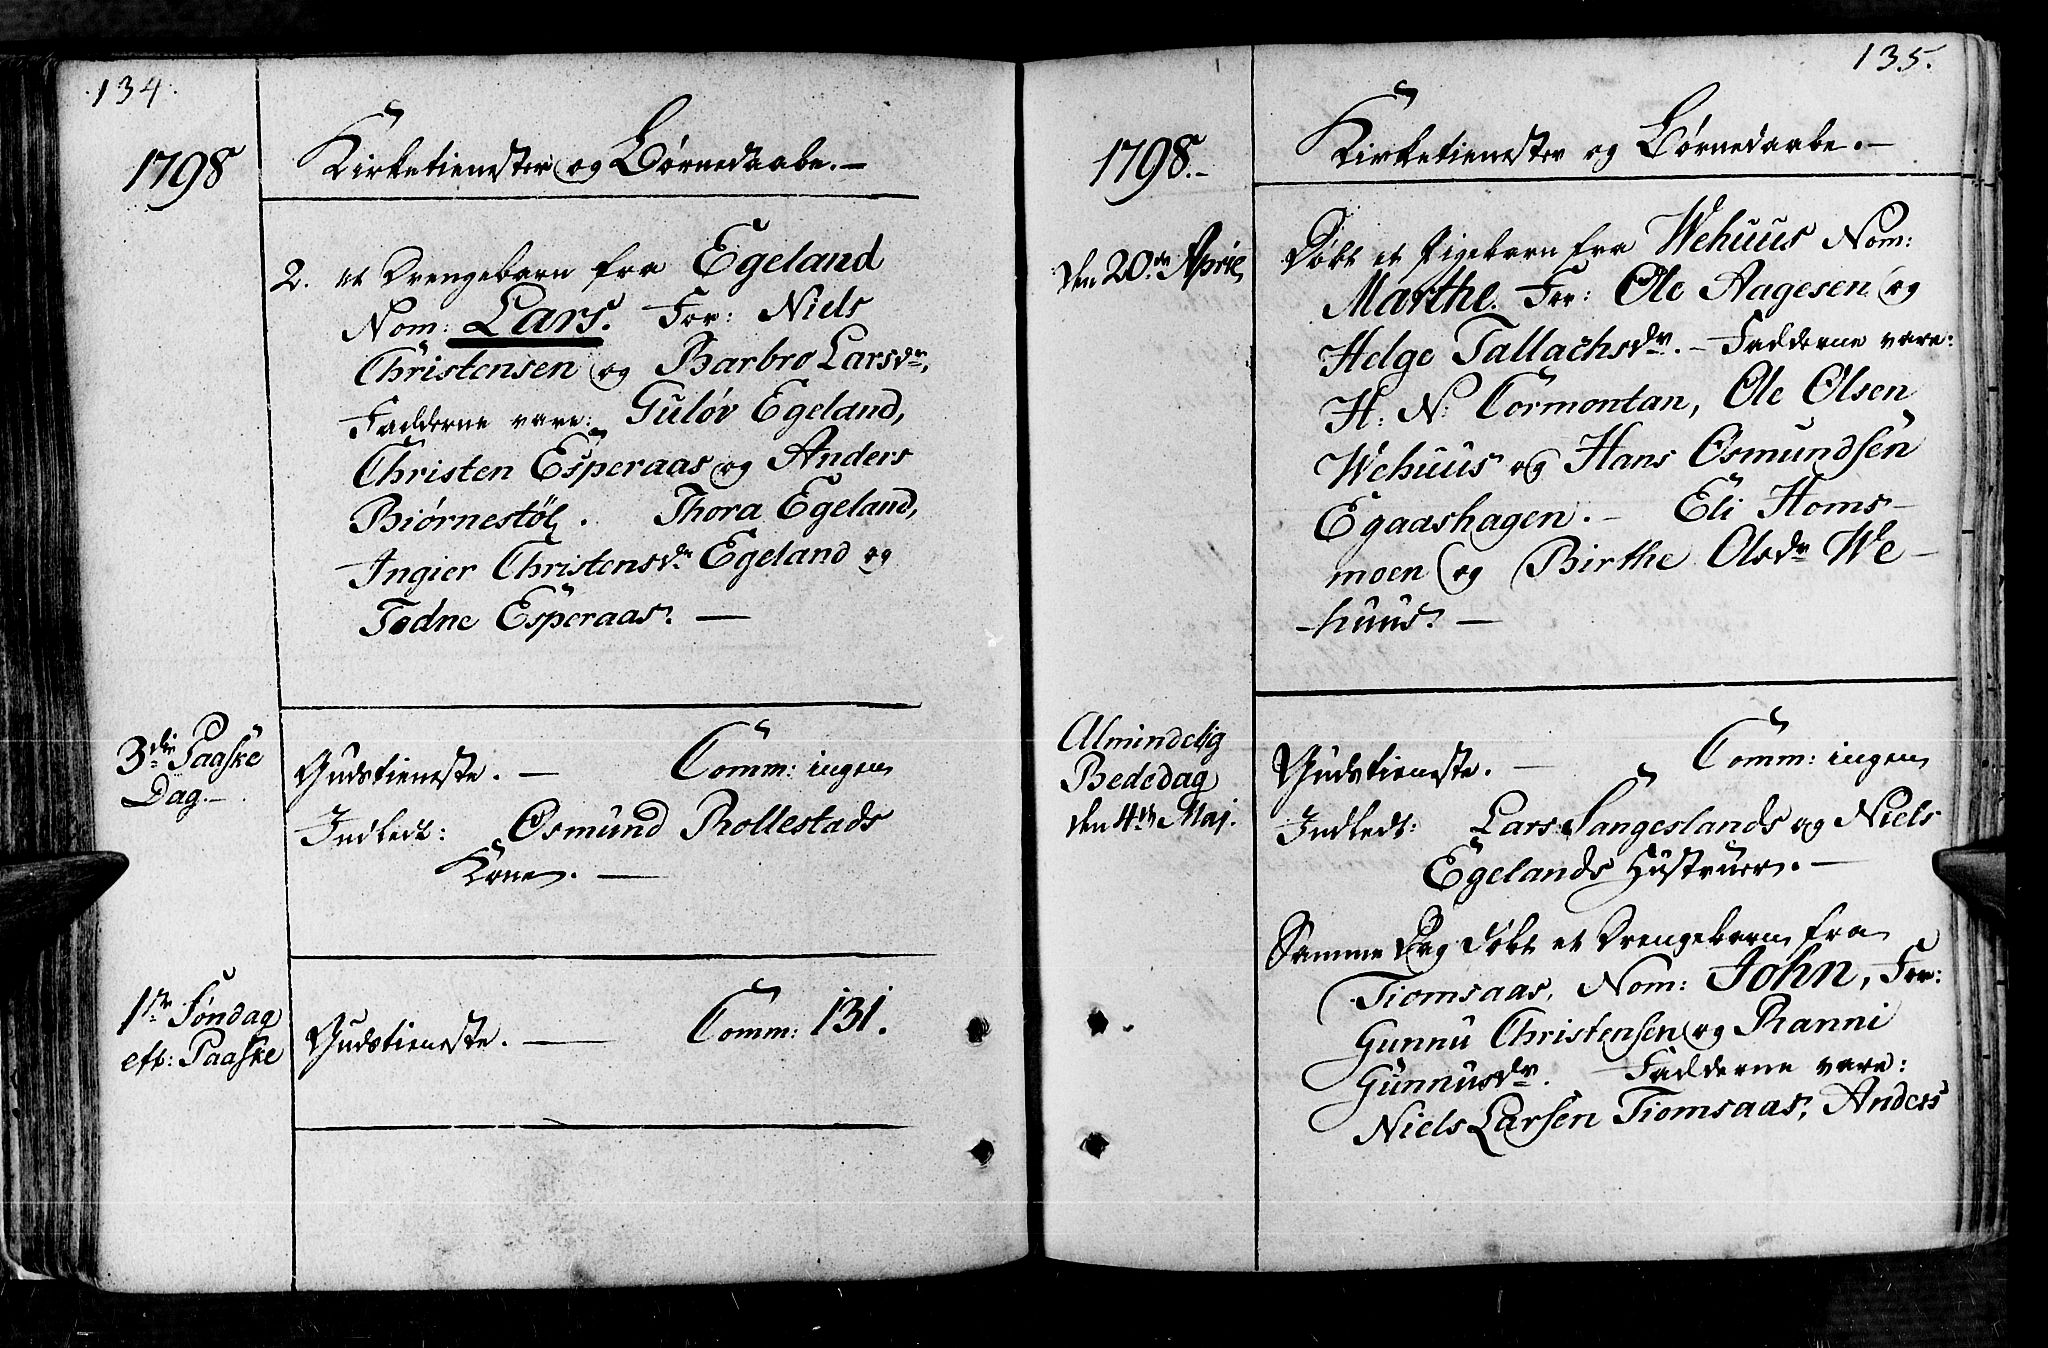 134.
1798
Kirketienester og Børnedaabe. —
2. et Drengebarn fra Egeland
Nom: Lars. For: Niels
Christensen og Barbro Larsdr.
Fadderne vare: Guløv Egeland,
Christen Esperaas og Anders
Biørnestøl. Thora Egeland,
Ingier Christensdr Egeland og
Todne Esperaas. —
3die Paaske
Dag. —
Gudstieneste. — Comm: ingen
Indledt: Osmund Rollestads
Kone. —
1ste Søndag
eft: Paaske
Gudstieneste. — Comm: 131.
135.
1798. —
Kirketienester og Børnedaabe. —
den 20de April
Døbt et Pigebarn fra Wehuus Nom:
Marthe. For: Ole Aagesen og
Helge Tallachsdr. — Fadderne vare:
H: N: Cormontan, Ole Olsen
Wehuus og Hans Osmundsen
Egaashagen. — Eli Homs-
moen og Birthe Olsdr We-
huus. —
Almindelig
Bededag
den 4de Maj.
Gudstieneste. — Comm: ingen
Indledt: Lars Sangeslands og Niels
Egelands Hustruer. —
Samme Dag døbt et Drengebarn fra
Tiomsaas, Nom: John, For:
Gunnu Christensen og Ranni
Gunnusdr. Fadderne vare:
Niels Larsen Tiomsaas, Anders